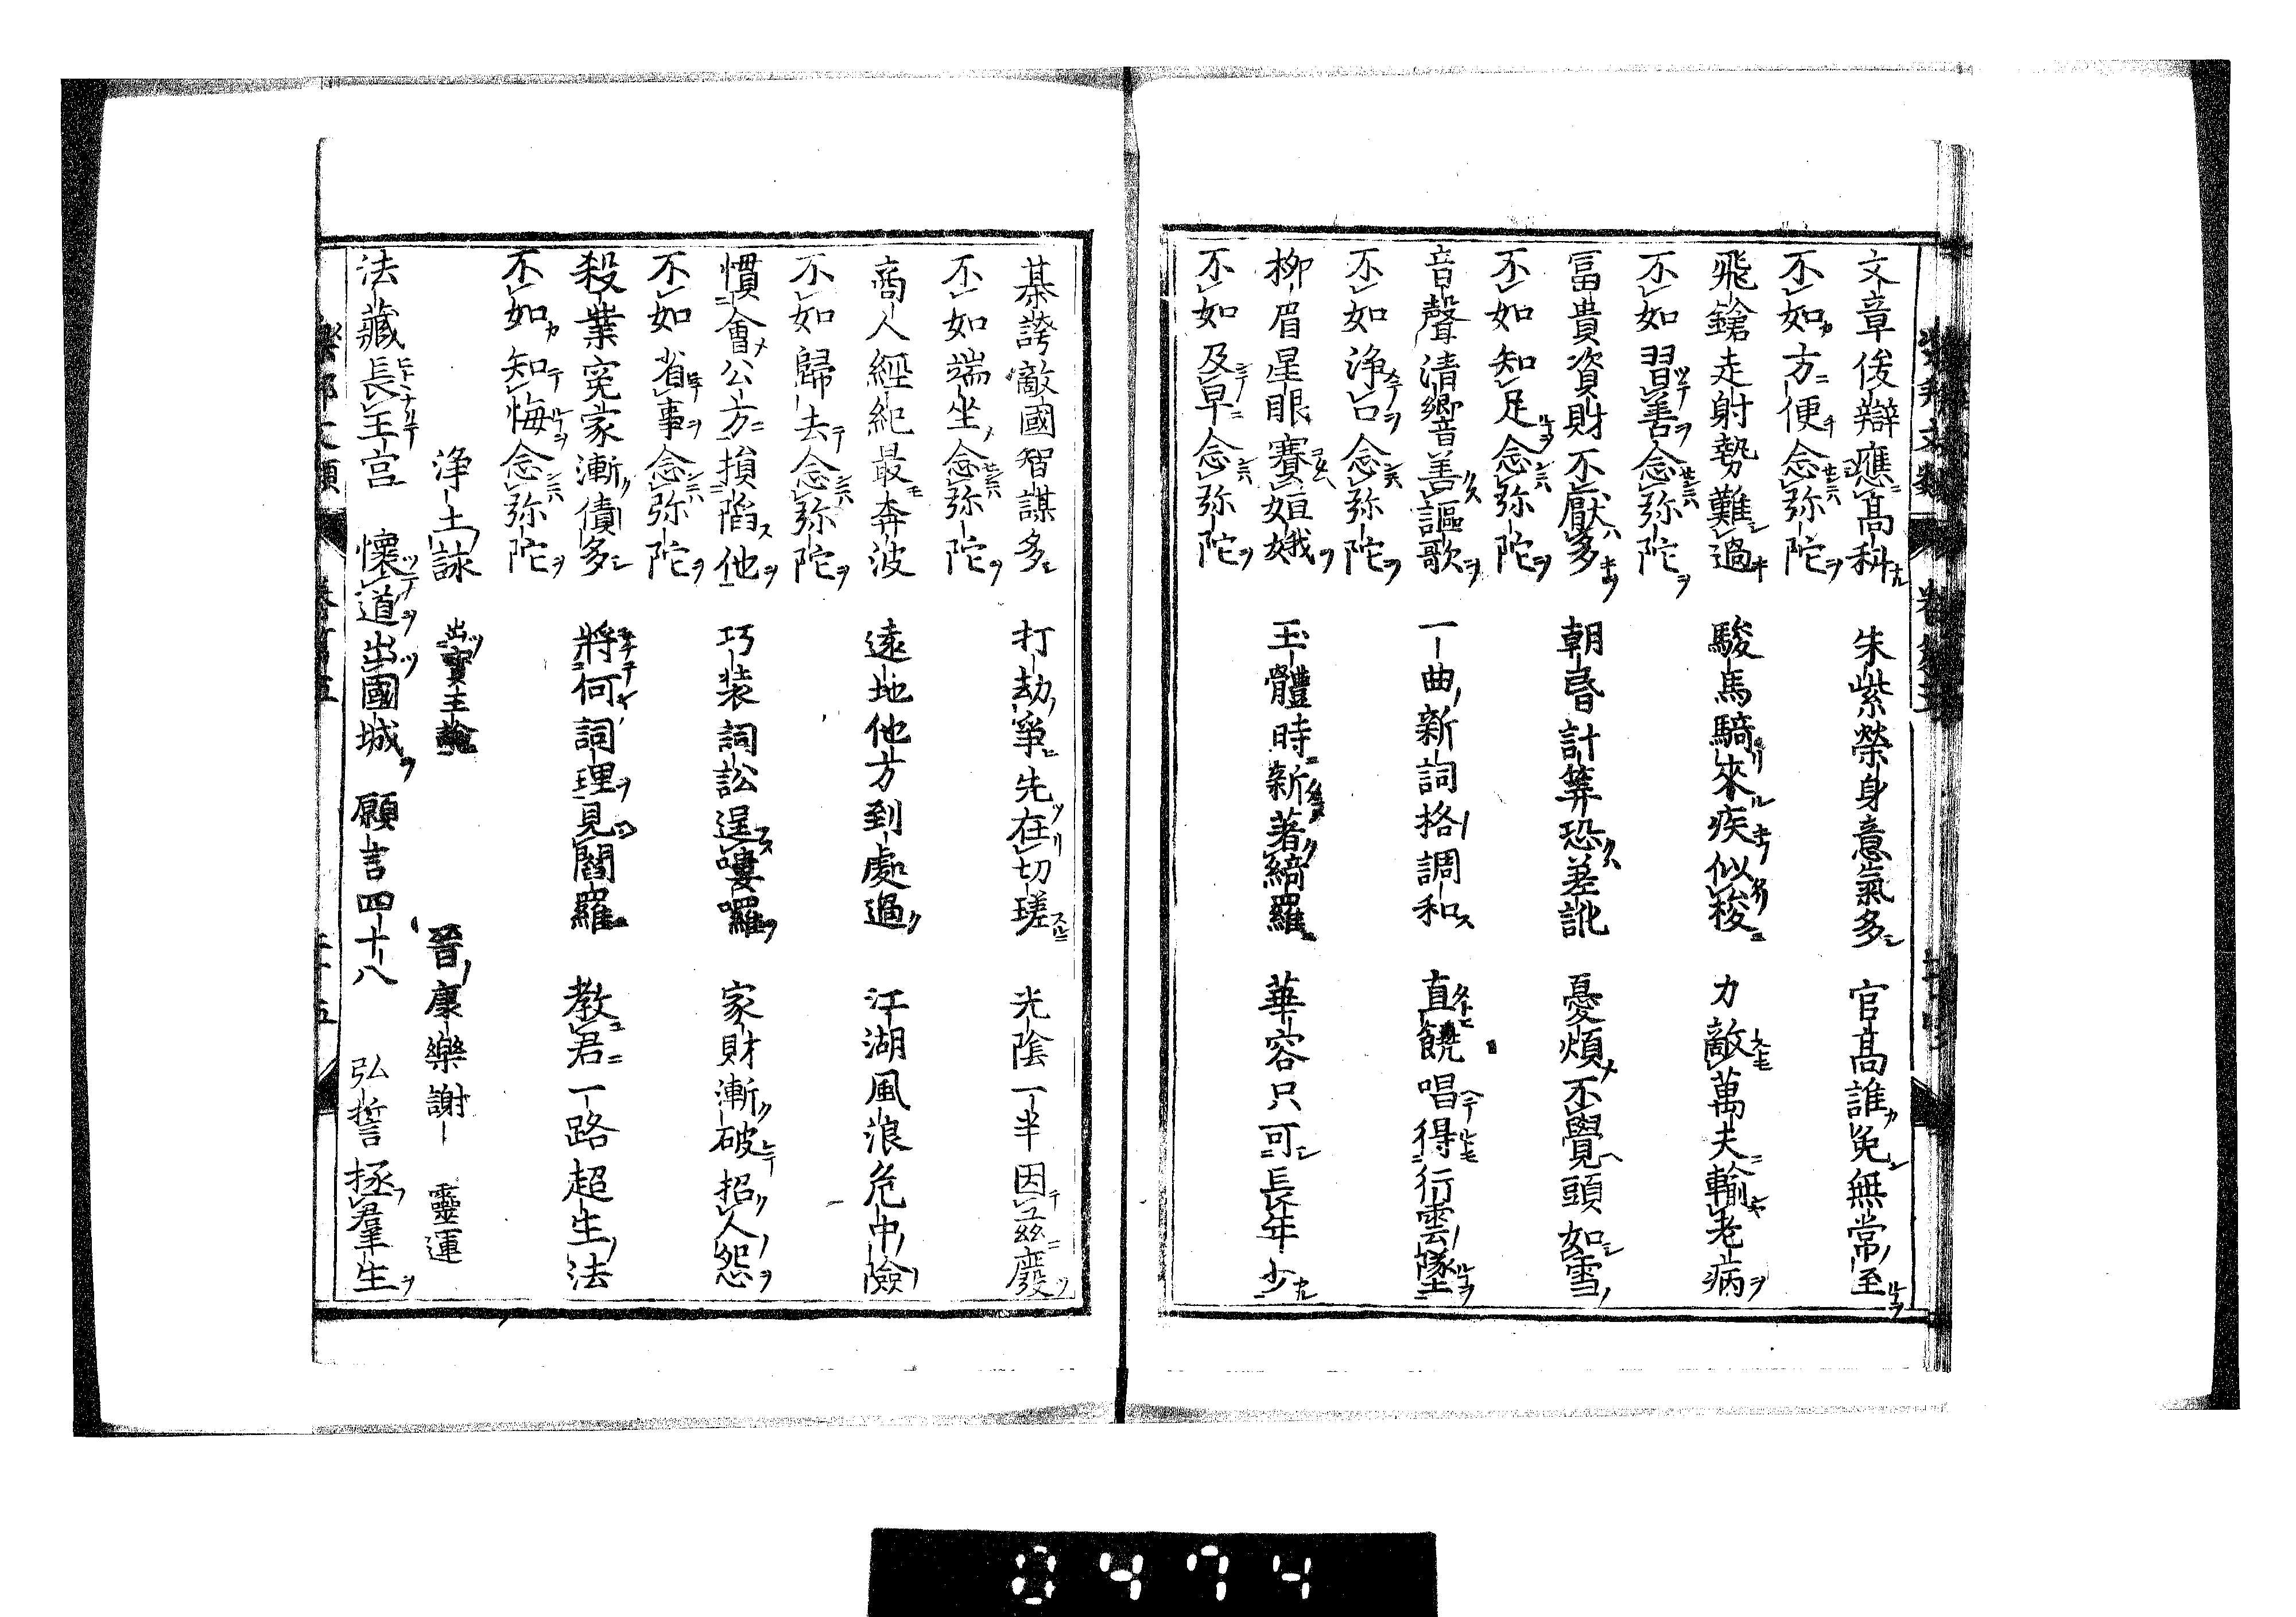 文章俊辯應高科 朱紫榮身意氣多 官高誰免無常至
不如方便念弥陀
飛鎗走射勢難過 駿馬騎來疾似梭 力敵萬夫輸老病
不如習善念弥陀
冨貴資財不厭多 朝昏計筭恐差訛 憂煩不覺頭如雪
不如知足念弥陀
音聲清響善謳歌 一曲新詞格調和 直饒唱得行雲墜
不如浄口念弥陀
柳眉星眼賽姮娥 玉體時新著綺羅 華容只可長年少
不如及早念弥陀
棊誇敵國智謀多 打劫爭先在切瑳 光陰一半因茲廢
不如端坐念弥陀
商人經紀最奔波 遠地他方到處過 江湖風浪危中險
不如歸去念弥陀
慣會公方損陷他 巧装詞訟逞嘍囉 家財漸破招人怨
不如省事念弥陀
殺業寃家漸債多 將何詞理見閻羅 教君一路超生法
不如知悔念弥陀
浄土詠 出寳主論 晉康樂謝靈運
法藏長王宮 懷道出國城 願言四十八 弘誓拯羣生
樂邦文類 卷第五 二十五
0474